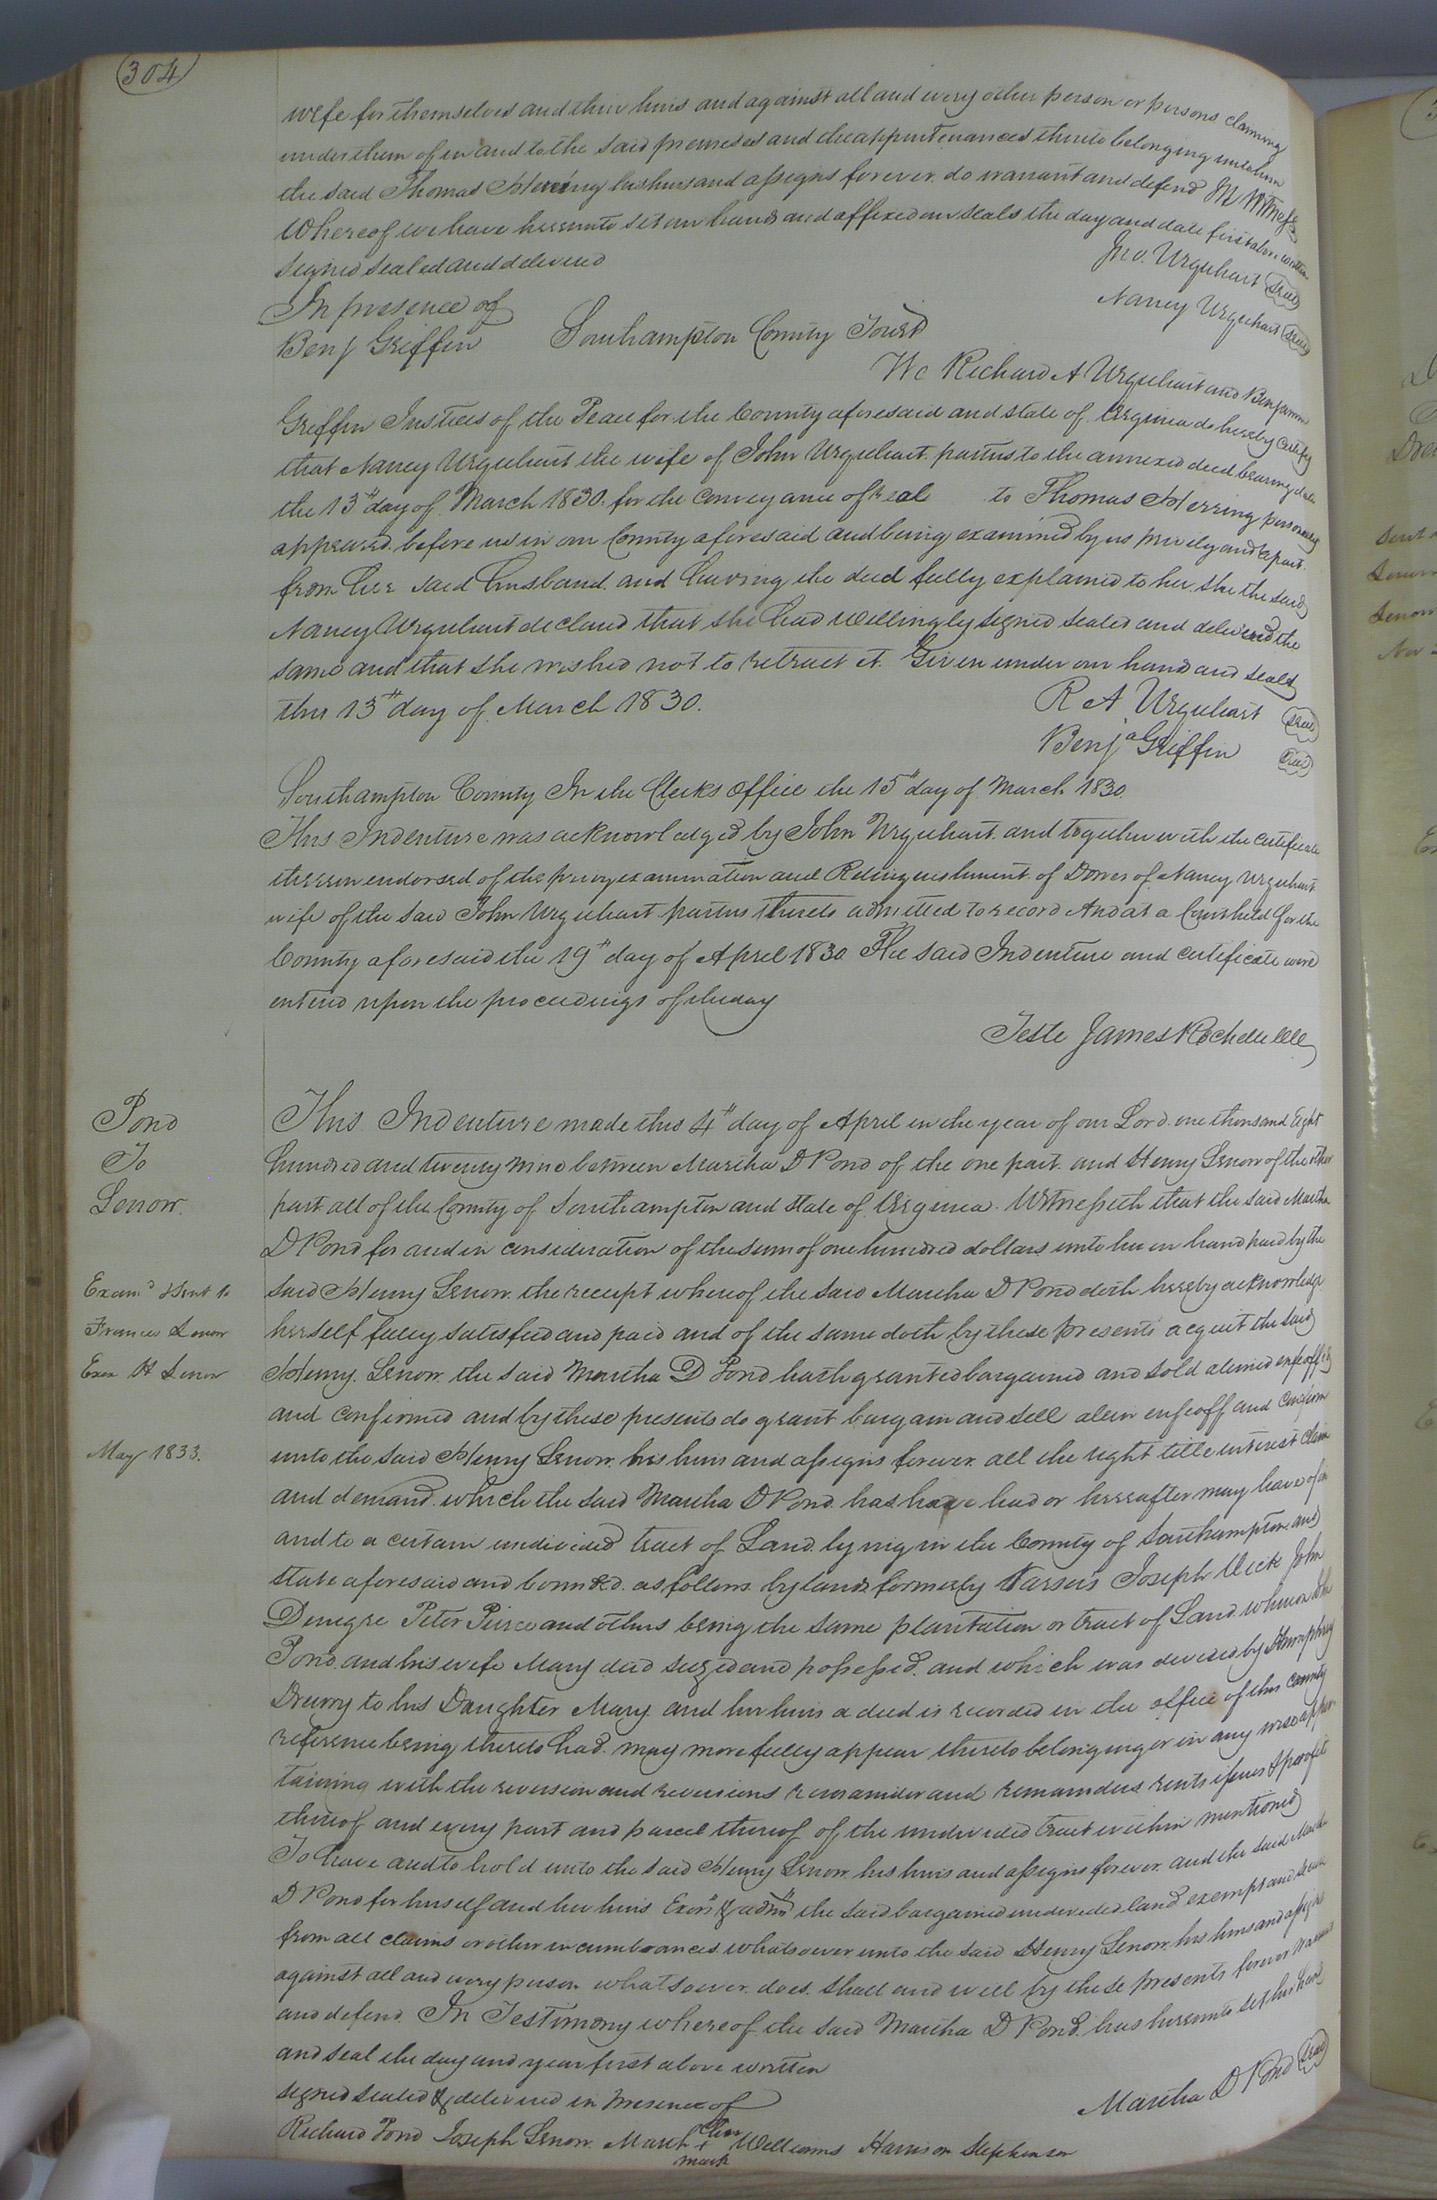 304
wife for themselves and their heirs and against all and every other person or persons claiming
under them of in and to the said premises and the appurtenances thereto belonging unto him
the said Thomas Herring his heirs and assigns forever do warrant and defend In Witness
Whereof we have hereunto set our hands and affixed our seals the day and date first above written
signed sealed and delivered
Jno. Urquhart Seal
In presence of
Nancy Urquhart Seal
Benj Griffin
Southampton County Towit
We Richard A Urquhart and Benjamin
Griffin Justices of the Peace for the County aforesaid and State of Virginia do hereby certify
that Nancy Urquhart the wife of John Urquhart parties to the annexed deed bearing date
the 13th day of March 1830. for the conveyance of real to Thomas Herring personally
appeared before us in our County aforesaid and being examined by us privily and apart
from her said husband and having the deed fully explained to her she the said
Nancy Urquhart declared that she had willingly signed sealed and delivered the
same and that she wished not to retract it. Given under our hands and seals
this 13th day of March 1830.
R A Urquhart Seal
Benja Griffin Seal
Southampton County In the Clerks Office the 15th day of March 1830
This Indenture was acknowledged by John Urquhart and together with the certificate
thereon endorsed of the privy examination and Relinquishment of Dower of Nancy Urquhart
wife of the said John Urquhart parties thereto admitted to record And at a Court held for the
County aforesaid the 19th day of April 1830 The said Indenture and certificate were
entered upon the proceedings of the day
Teste James Rochelle
Pond
To
Lenow.
Examd & Sent to
Frances Lenow
Exex H Lenow
May 1833.
This Indenture made this 4th day of April in the year of our Lord one thousand Eight
hundred and twenty nine between Martha D Pond of the one part and Henry Lenow of the other
part all of the County of Southampton and State of Virginia. Witnesseth that the said Martha
D Pond for and in consideration of the sum of one hundred dollars unto her in hand paid by the
said Henry Lenow the receipt whereof the said Martha D Pond doth hereby acknowledge
herself fully satisfied and paid and of the same doth by these presents acquit the said
Henry Lenow the said Martha D Pond hath granted bargained and sold aliened enfeoffed
and confirmed and by these presents do grant bargain and sell alien enfeoff and confirm
unto the said Henry Lenow his heirs and assigns forever all the right title interest claim
and demand which the said Martha D Pond has have had or hereafter may have of in
and to a certain undivided tract of Land lying in the County of Southampton and
State aforesaid and bounded as follows by lands formerly Vassers Joseph Vick John
Denegre Peter Peirce and others being the same plantation or tract of Land whereon John
Pond and his wife Mary died seized and possessed and which was devised by Humphrey
Drewry to his Daughter Mary and her heirs a deed is recorded in the office of this county
reference being thereto had may more fully appear thereto belonging or in any wise apper
taining with the reversion and reversions remainder and remainders rents issues & profits
thereof and every part and parcel thereof of the undivided tract within mentioned
To have and to hold unto the said Henry Lenow his heirs and assigns forever and the said Martha
D Pond for himself and her heirs Exors & admrs the said bargained undivided land exempt and secure
from all claims or other incumbrances whatsoever unto the said Henry Lenow his heirs and assigns
against all and every person whatsoever does shall and will by these presents forever Warrant
and defend. In Testimony whereof the said Martha D Pond has hereunto set his hand
and seal the day and year first above written
signed sealed & delivered in Presence of
Martha D Pond Seal
Richard Pond Joseph Lenow March her + mark Williams Harrison Stephenson